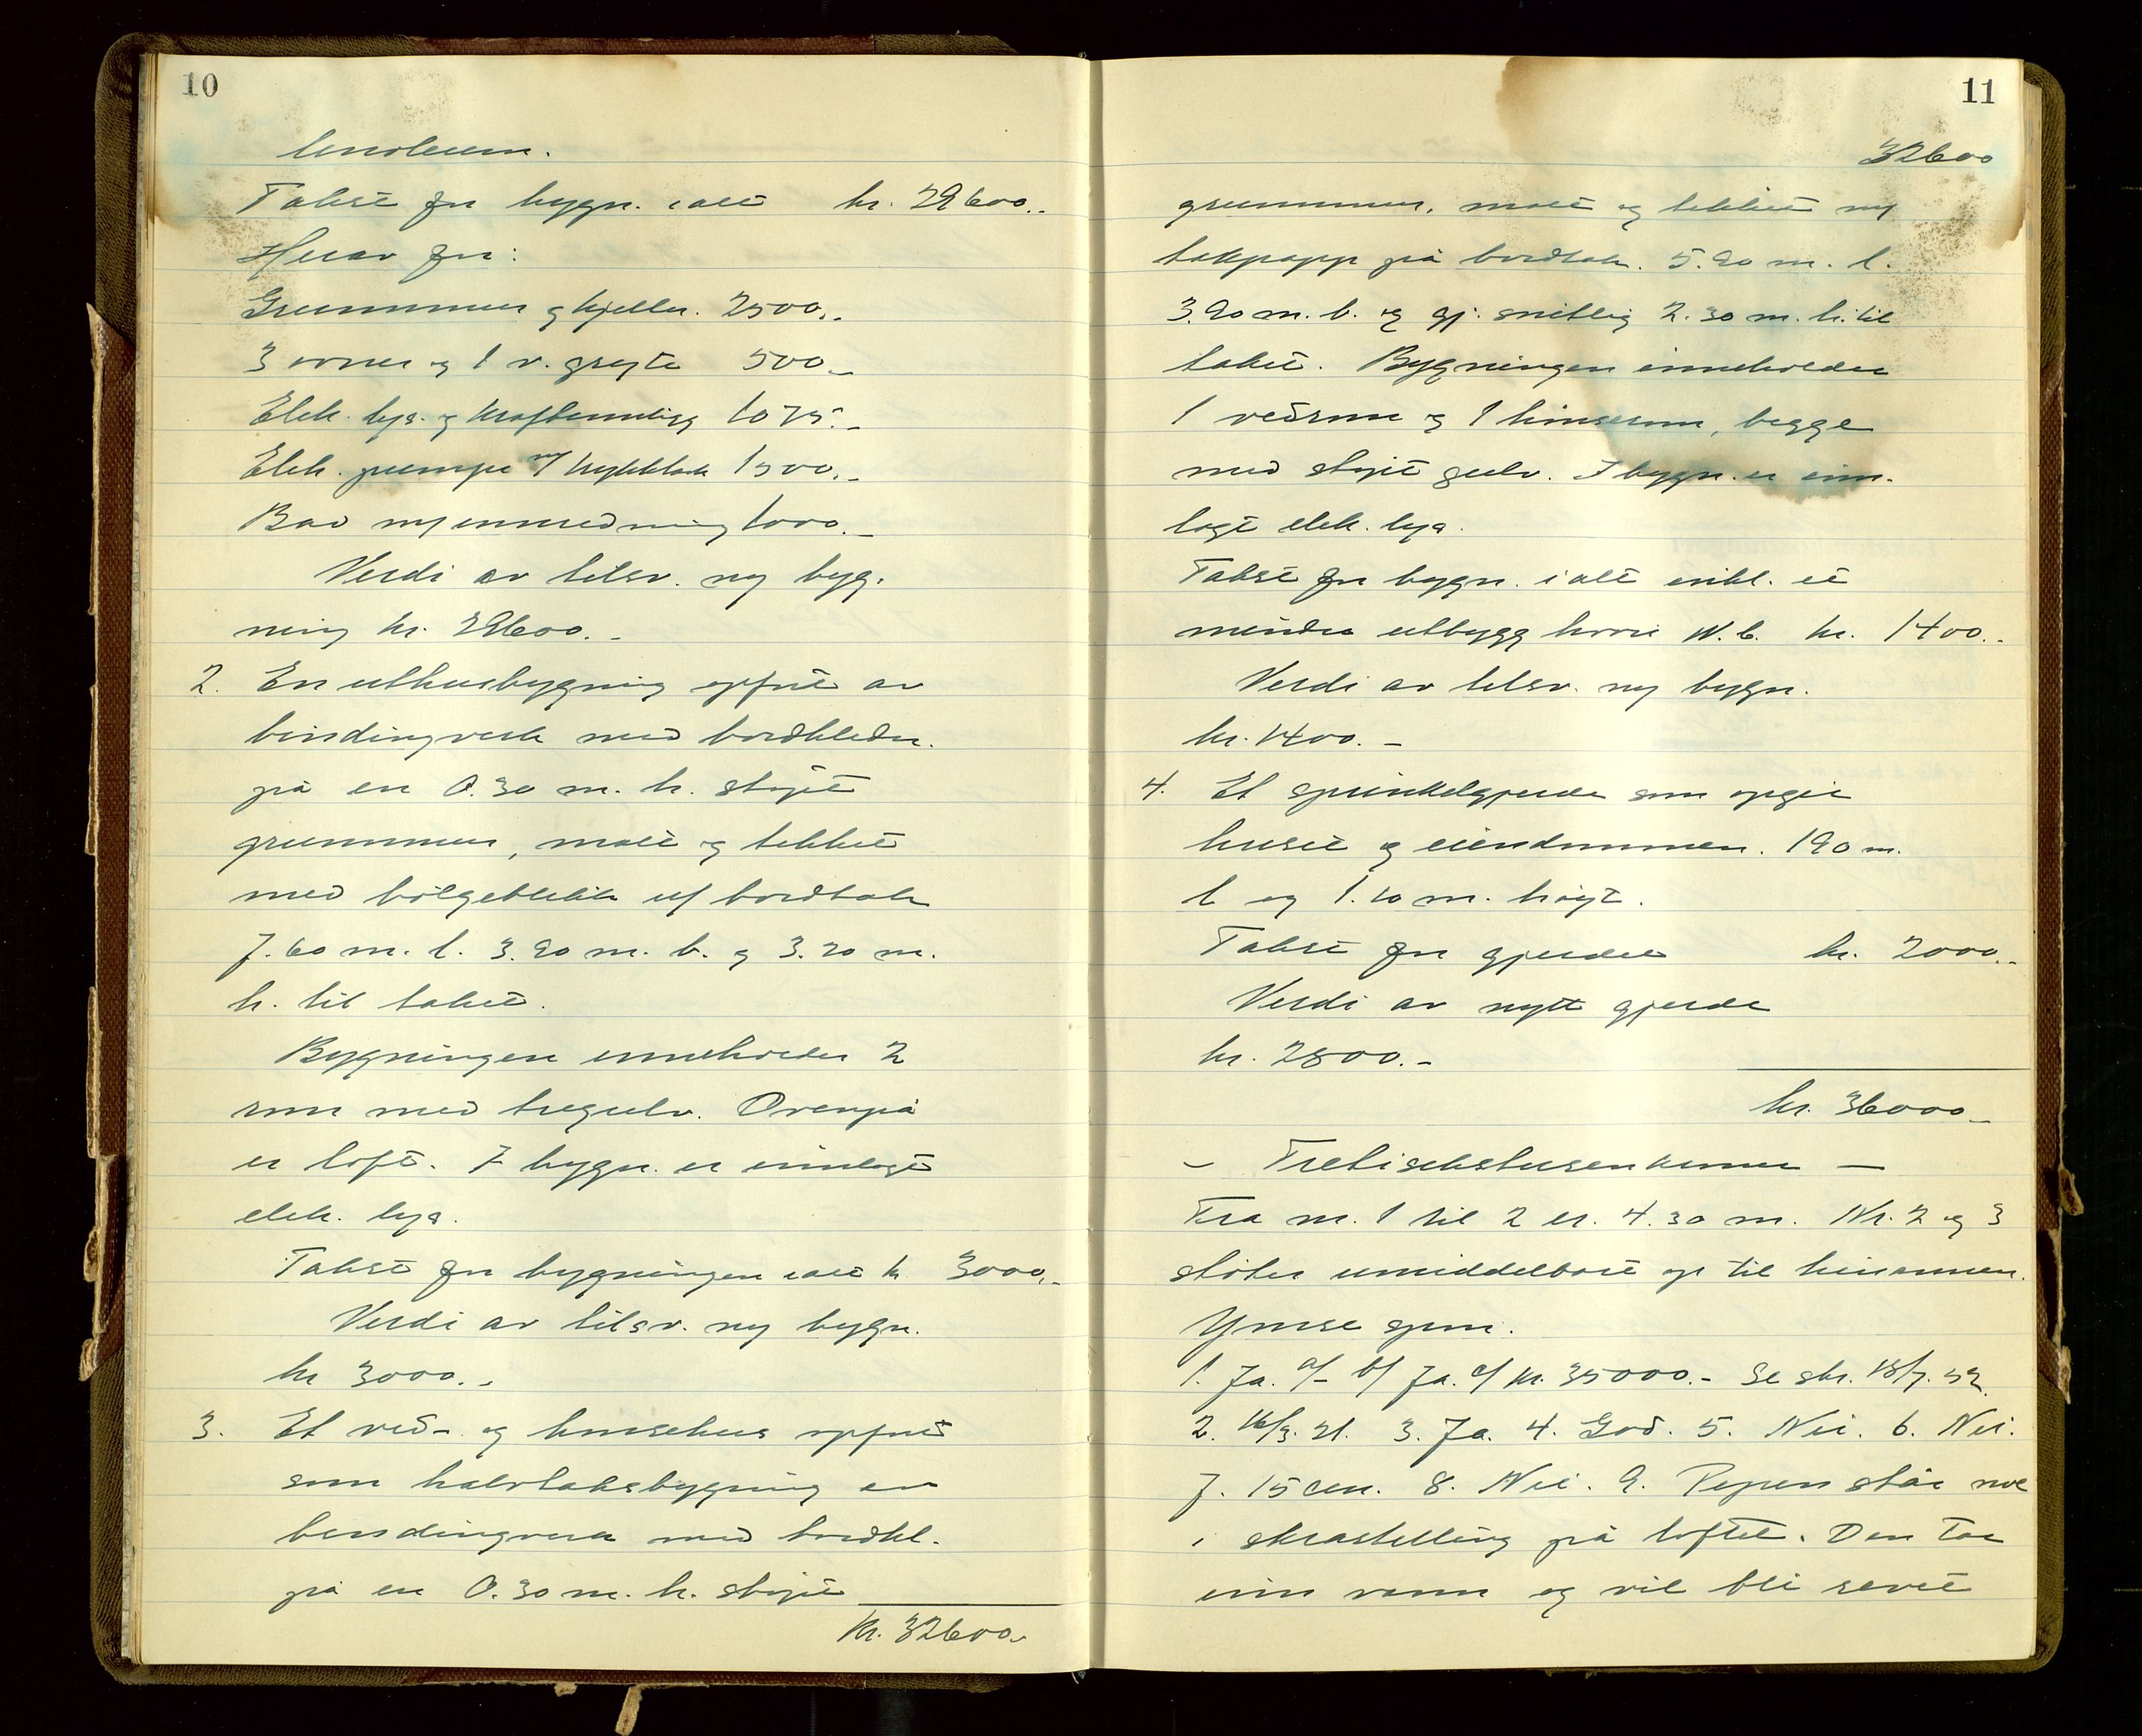 10
linoleum.
Takst for bygn. ialt kr. 29600.-
Herav for:
Grunnmur og kjeller. 2500.-
3 ovner og 1 v. gryte 500.-
Elek. lys- og kraftinnlegg 1075.-
Elek. pumpe m/ trykktank 1500.-
Bad m/ innredning 1000.-
Verdi av tilsv. ny byg-
ning kr. 29600.-
2. En uthusbygning opført av
bindingverk med bordkledn.
på en 0.30 m. h. støpt
grunnmur, malt og tekket
med bølgeblikk u/ bordtak
7.60 m. l. 3.90 m. b. og 3.20 m.
h. til taket.
Bygningen inneholder 2
rom med tregulv. Ovenpå
er loft. I bygn. er innlagt
elek. lys.
Takst for bygningen ialt kr 3000.-
Verdi av tilsv. ny bygn.
kr 3000.-
3. Et ved- og hønsehus opført
som halvtaksbygning av
bindingverk med bordkl.
på en 0.30 m. h. støpt
kr. 32600.-
11
32600
grunnmur, malt og tekket m/
takpapp på bordtak. 5.90 m. l.
3.90 m. b. og gj. snitlig 2.30 m. h. til
taket. Bygningen inneholder
1 vedrom og 1 hønserom, begge
med støpt gulv. I bygn. er inn-
lagt elek. lys.
Takst for bygn. ialt inkl. et
mindre utbygg hvori W.C. kr. 1400.-
Verdi av tilsv. ny bygn.
kr. 1400.-
4. Et sprinkelgjerde som omgir
huset og eiendommen. 190 m.
l og 1.10 m. høgt.
Takst for gjerdet kr. 2000.-
Verdi av nytt gjerde
kr. 2800.-
kr. 36000.-
- Trettisekstusen kroner -
Fra nr. 1 til 2 er 4.30 m. Nr. 2 og 3
støter umiddelbart op til hinannen.
Ymse spm.
1. Ja. a/- b/ Ja. c/ kr. 35000.- Se skr. 18/7. 52.
2. 16/3. 21. 3. Ja. 4. God. 5. Nei. 6. Nei.
7. 15 cm. 8. Nei. 9. Pipen står noe
i skråstilling på loftet. Den tar
inn vann og vil bli revet